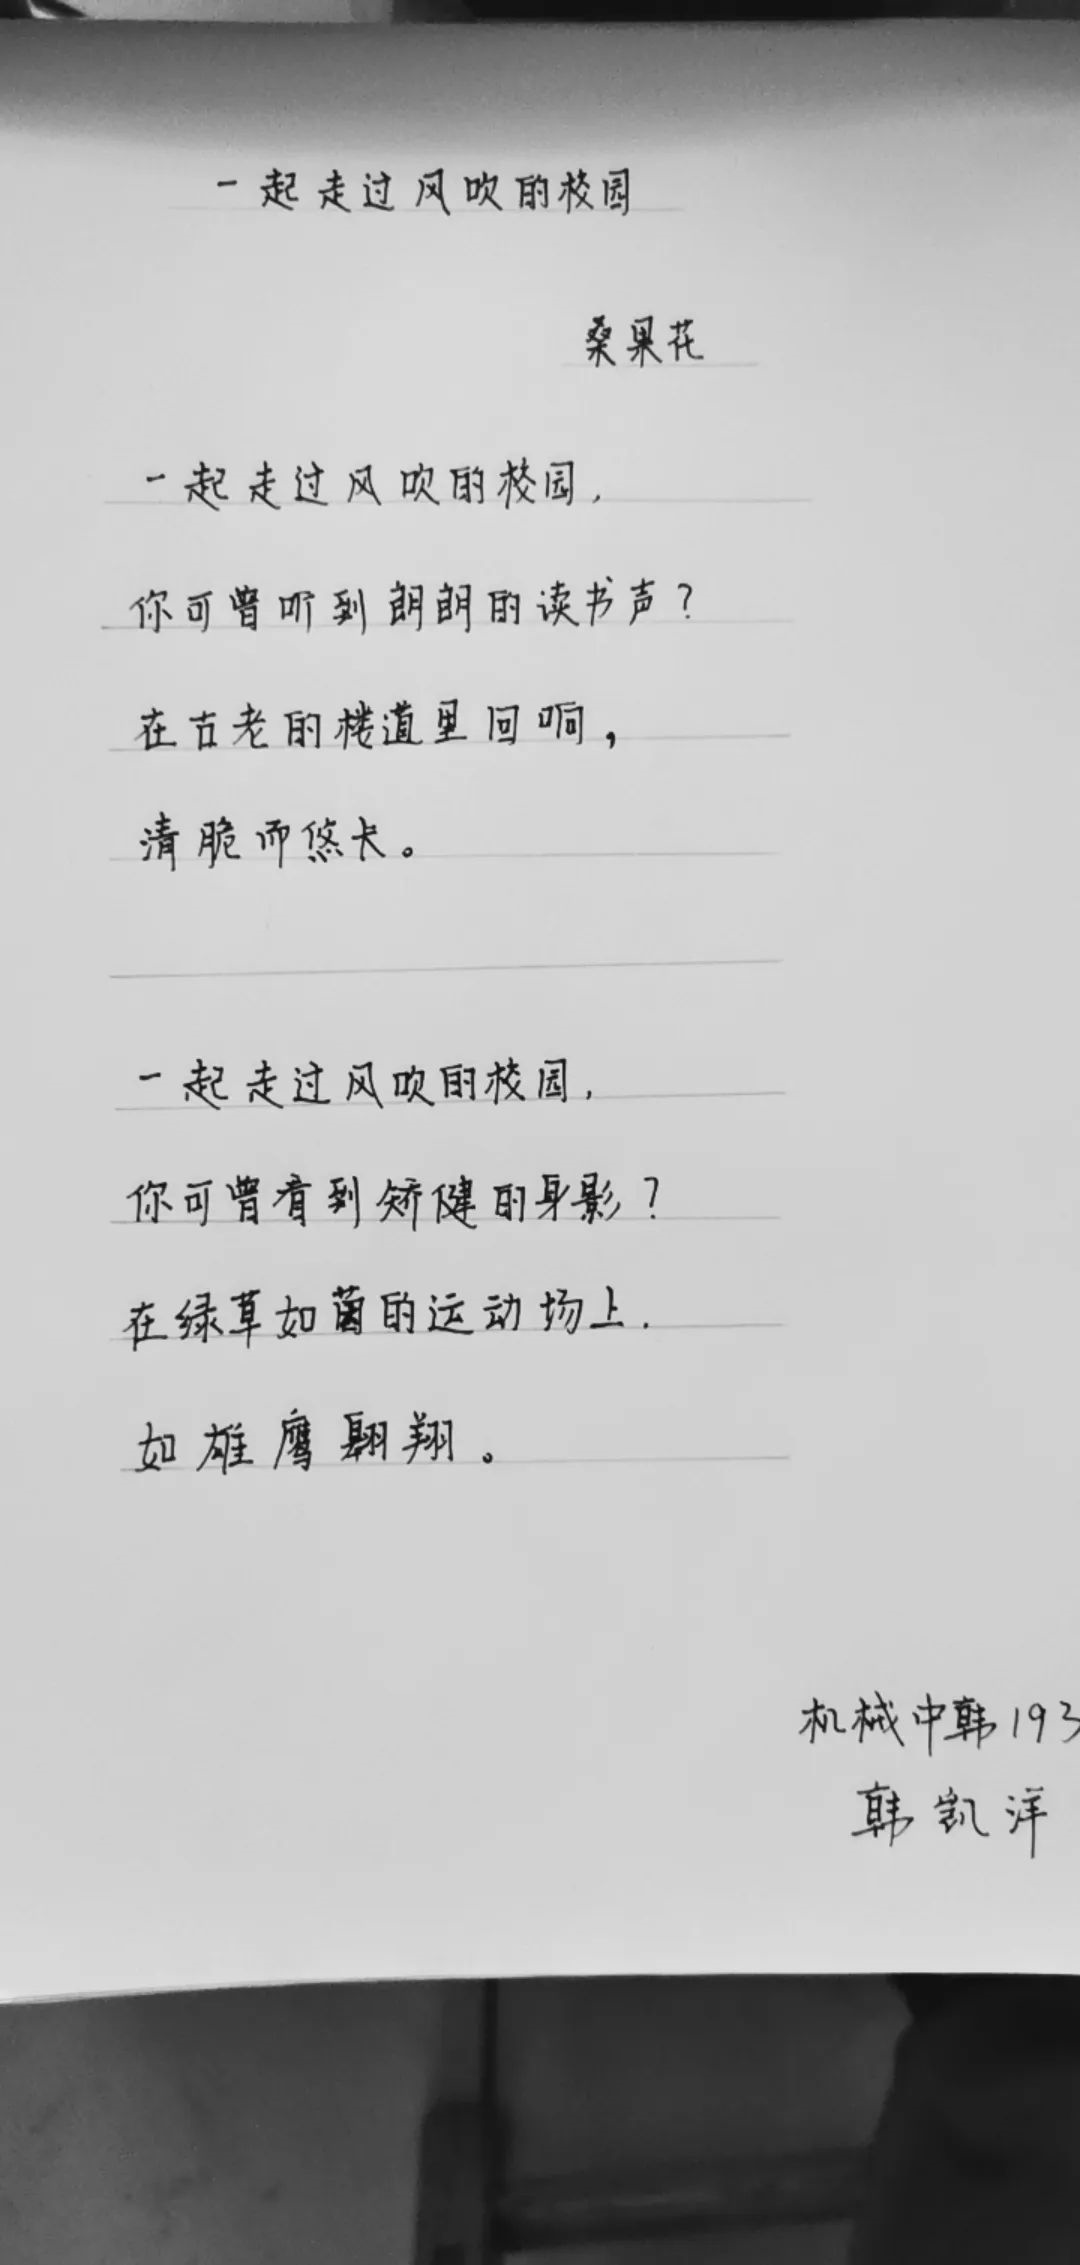 一起走过风吹的校园
桑果花
一起走过风吹的校园，
你可曾听到朗朗的读书声？
在古老的楼道里回响，
清脆而悠长。
一起走过风吹的校园，
你可曾看到矫健的身影？
在绿草如茵的运动场上，
如雄鹰翱翔。
机械中韩193
韩凯洋